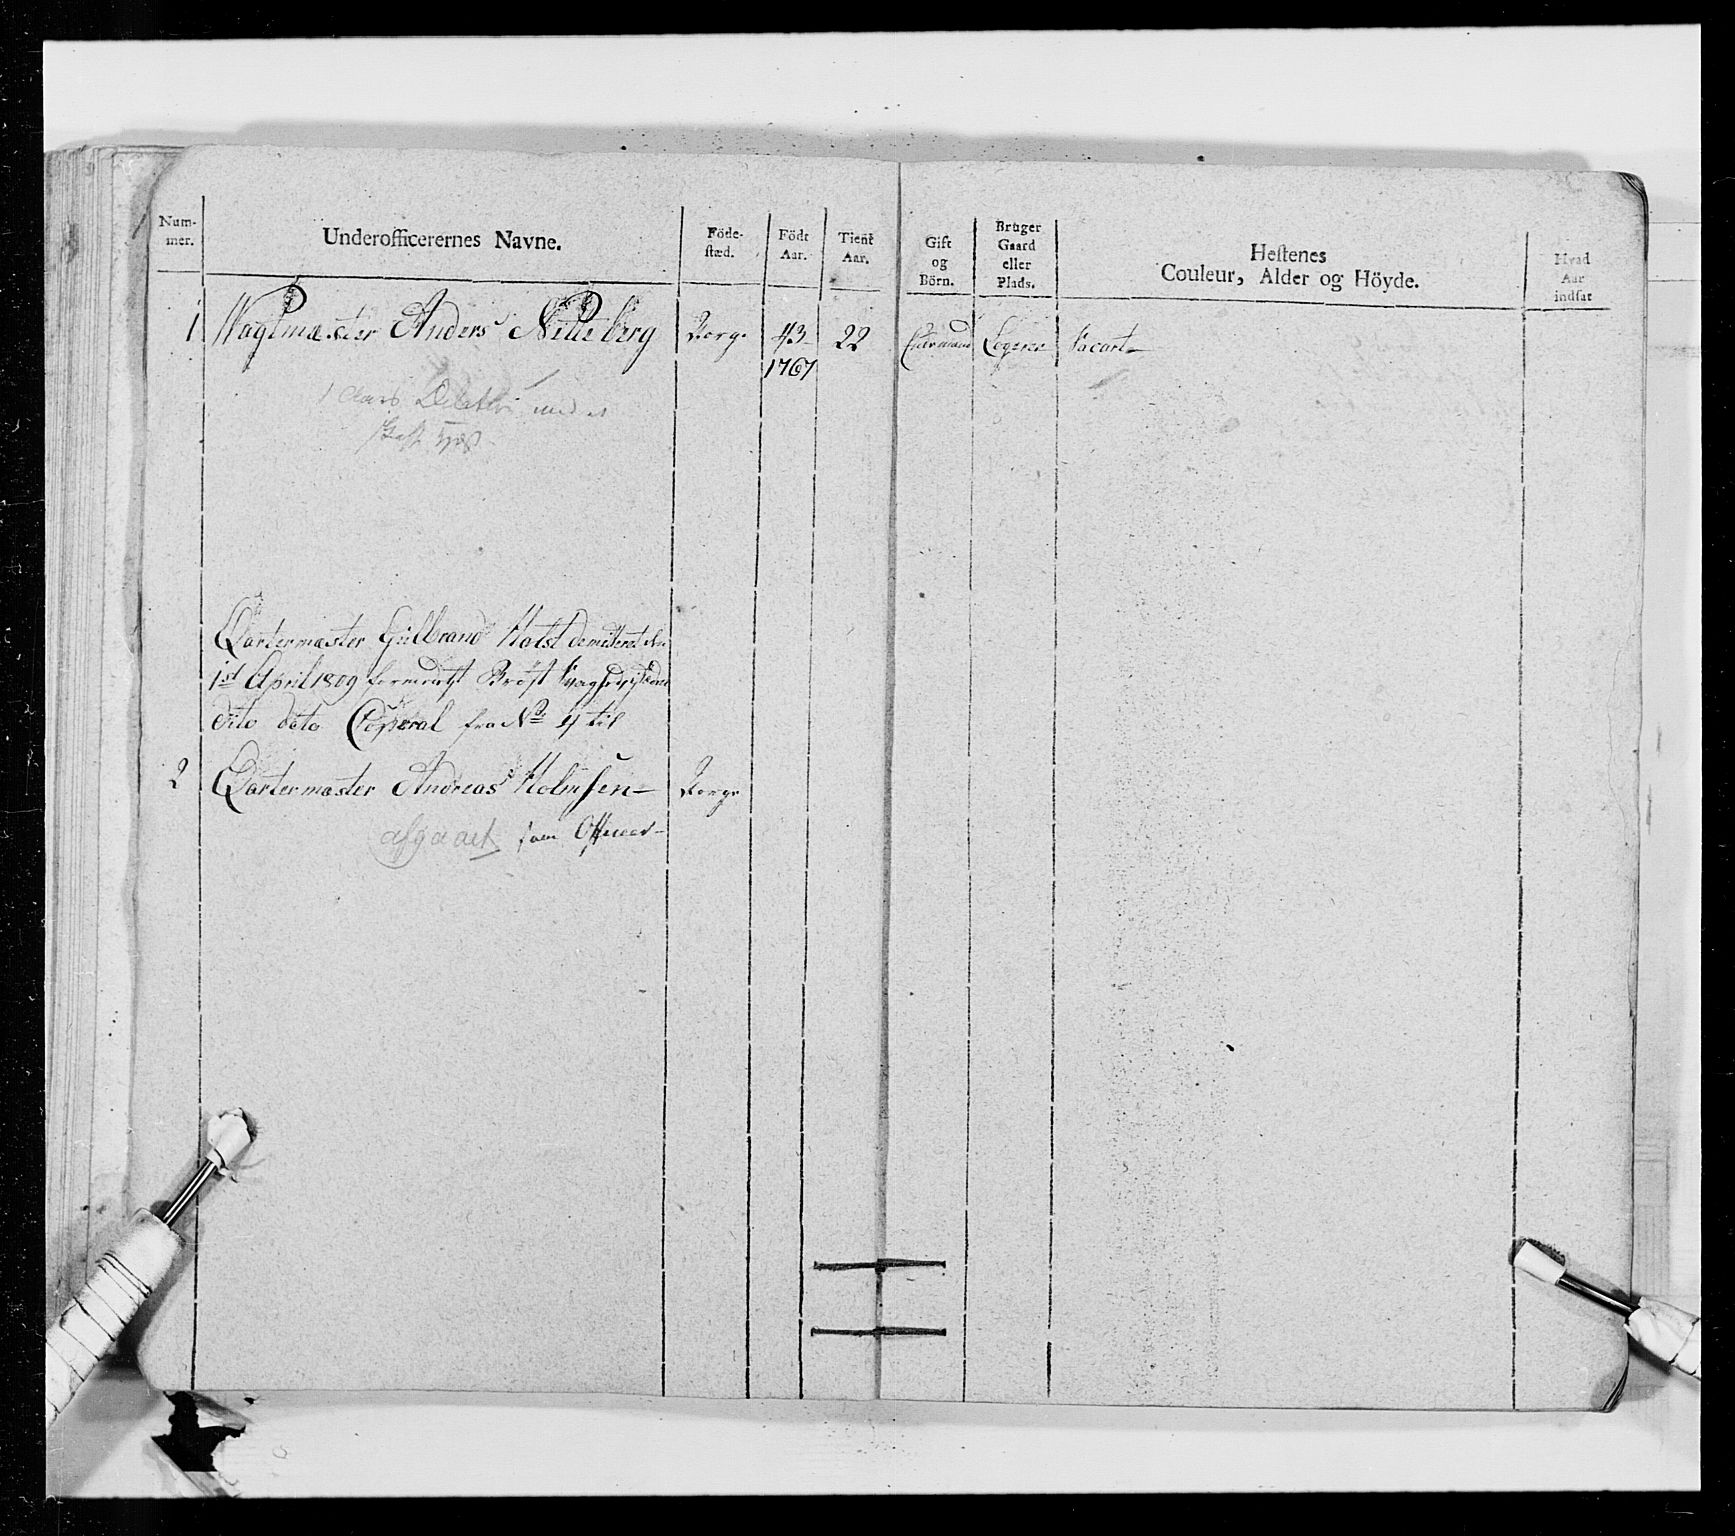 Num-
mer.
Underofficerernes Navne.
Föde-
stæd.
Födt
Aar.
Tient
Aar.
Gift
og
Börn.
Bruger
Gaard
eller
Plads.
Hestenes
Couleur, Alder og Höyde.
Hvad
Aar
indsat
1 Wagtmæster Anders Netteberg Norge 43 22 Logerer Vacant
1767
1 Aars
Qartermæster Gulbrand Holst demiteret den
1st April 1809
dito dato Coperal fra No 4 til
2 Qartermæster Andreas Holmsen Norge
afgaaet som Officer